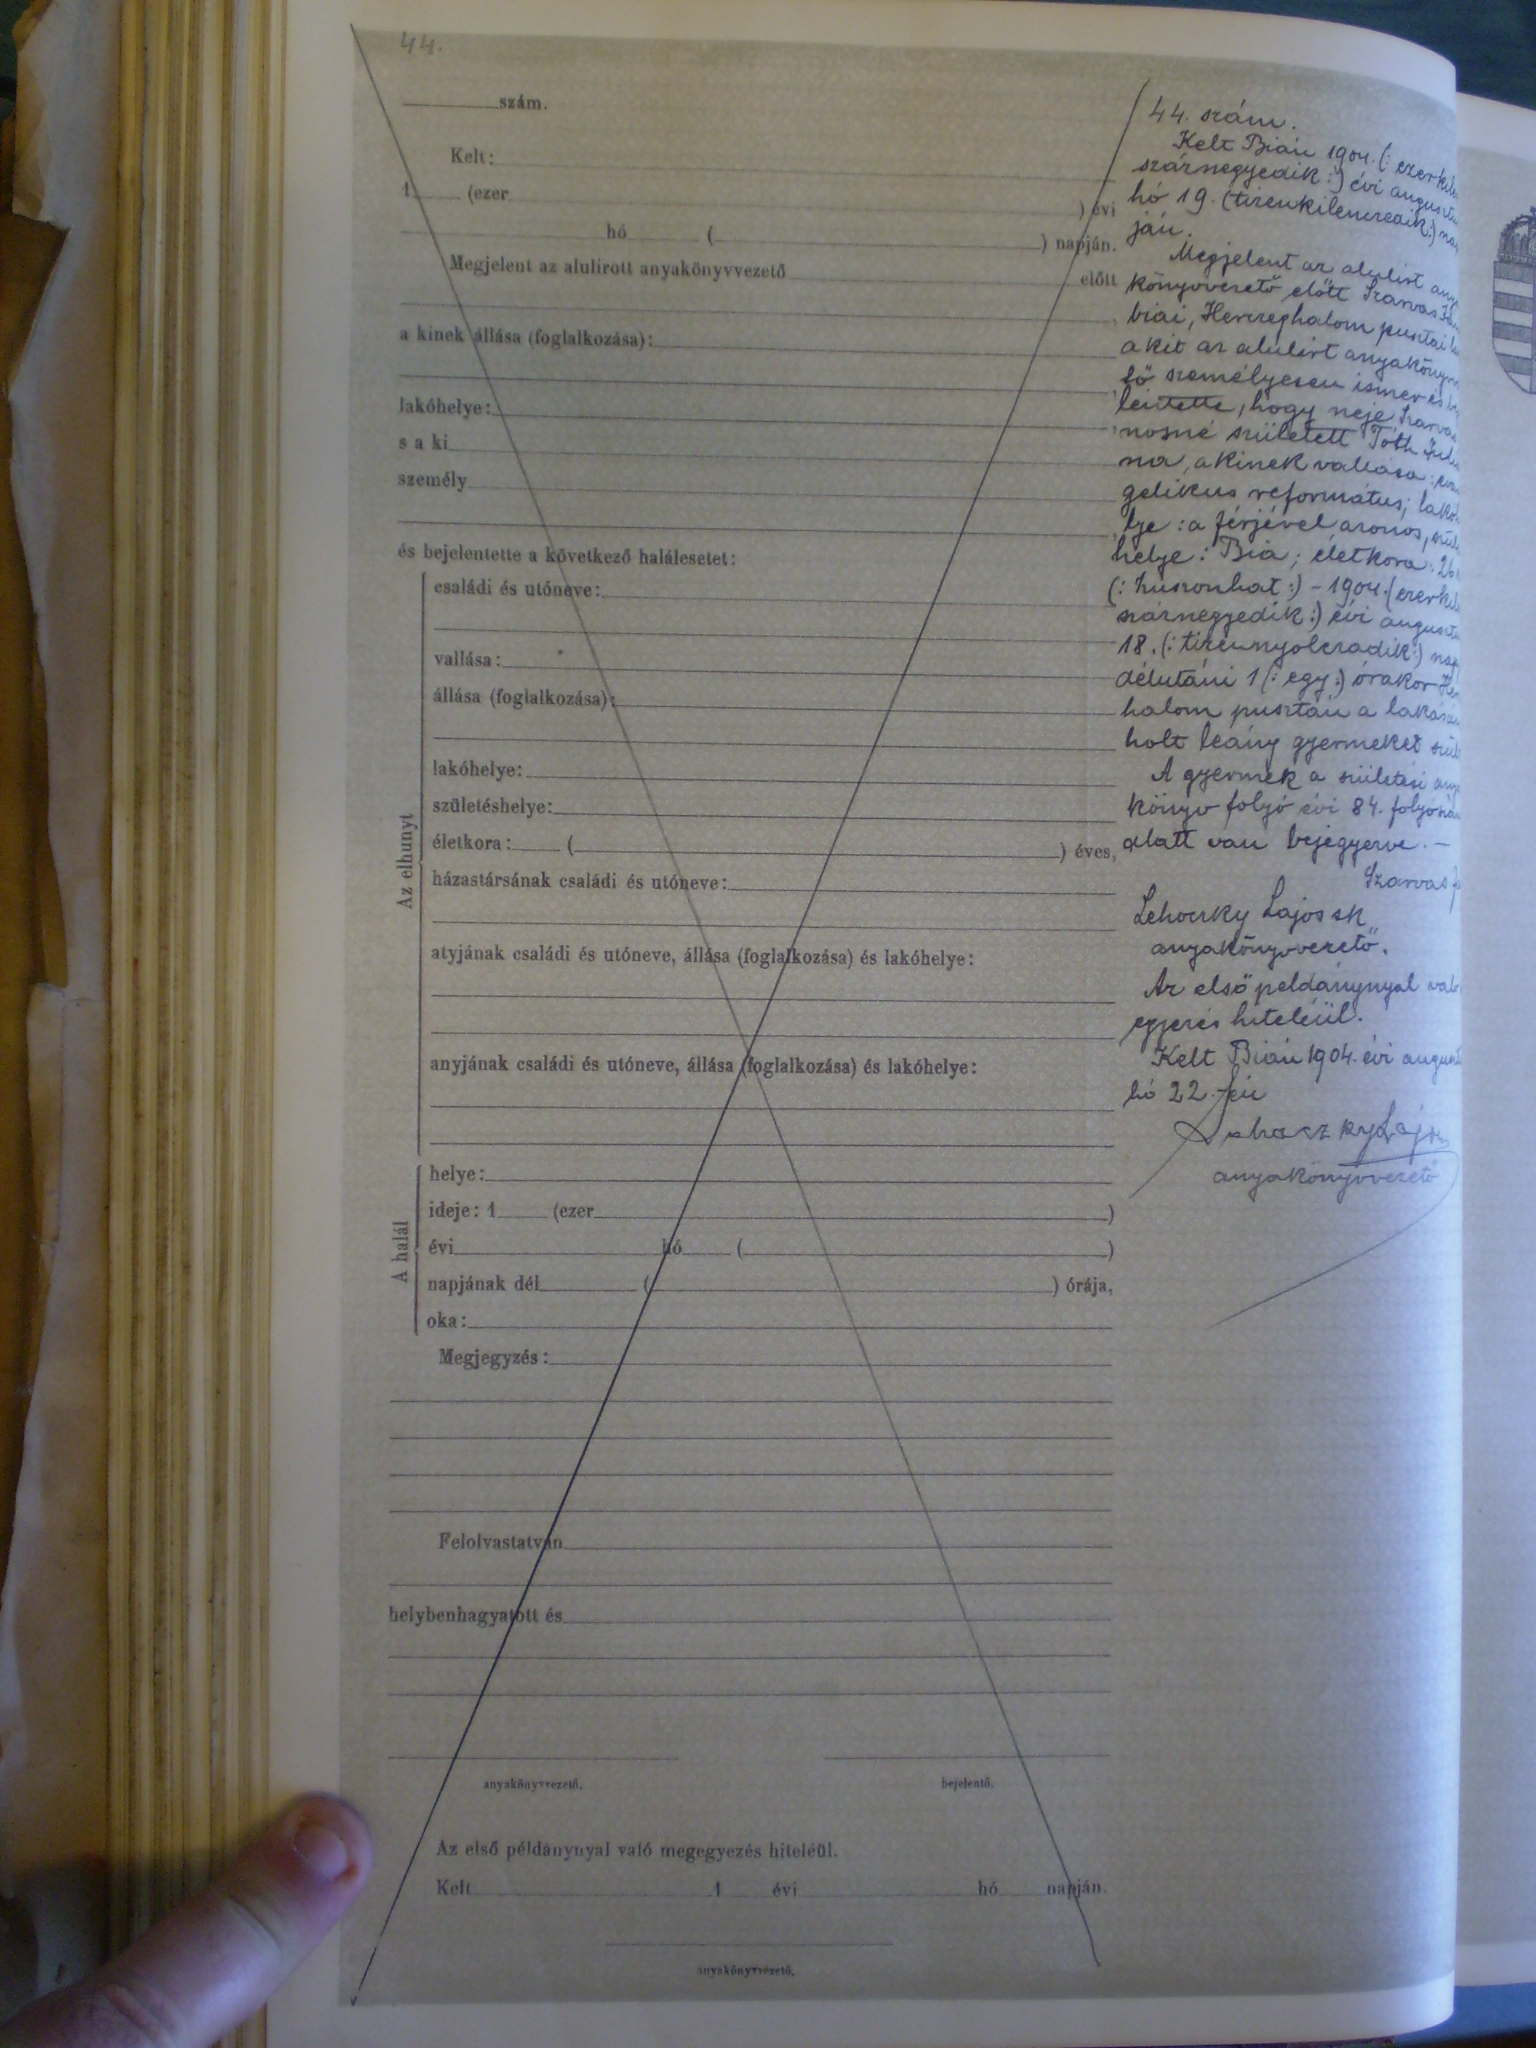 44.
szám.
Kelt:
1 (ezer ) évi
hó ( ) napján.
Megjelent az alulirott anyakönyvvezető előtt
a kinek állása (foglalkozása):
lakóhelye:
s a ki
személy
és bejelentette a következő halálesetet:
Az elhunyt
családi és utóneve:
vallása:
állása (foglalkozása):
lakóhelye:
születéshelye:
életkora: ( ) éves,
házastársának családi és utóneve:
atyjának családi és utóneve, állása (foglalkozása) és lakóhelye:
anyjának családi és utóneve, állása (foglalkozása) és lakóhelye:
A halál
helye:
ideje: 1 (ezer )
évi hó ( )
napjának dél ( ) órája,
oka:
Megjegyzés:
Felolvastatván
helybenhagyatott és
anyakönyvvezető. bejelentő.
Az első példánynyal való megegyezés hiteléül.
Kelt 1 évi hó napján.
anyakönyvvezető.
44. szám.
Kelt Bián 1904. (: ezerkile
száznegyedik :) évi auguszt
hó 19. (tizenkilenczedik:) nap
ján.
Megjelent az alulirt any
könyvvezető előtt Szarvas Já
biai, Herczeghalom pusztai
akit az alulirt anyakönyv
tő személyesen ismer és be
lentette, hogy neje Szarvas
nosné született Tóth Juli
na, akinek vallása: evan
gelikus református; lakó
lye: a férjével azonos, szül
helye: Bia; életkora: 26
(: huszonhat :) – 1904. (ezerkil
száznegyedik :) évi auguszt
18. (: tizennyolczadik :) nap
délutáni 1 (: egy :) órakor Her
halom pusztán a lakásán
holt leány gyermeket szül
A gyermek a születési any
könyv folyó évi 84. folyószám
alatt van bejegyezve. –
Szarvas
Lehoczky Lajos sk
anyakönyvvezető.
Az első példánynyal való
egyezés hiteléül.
Kelt Bián 1904. évi auguszt
hó 22.-én
Lehoczky Lajos
anyakönyvvezető